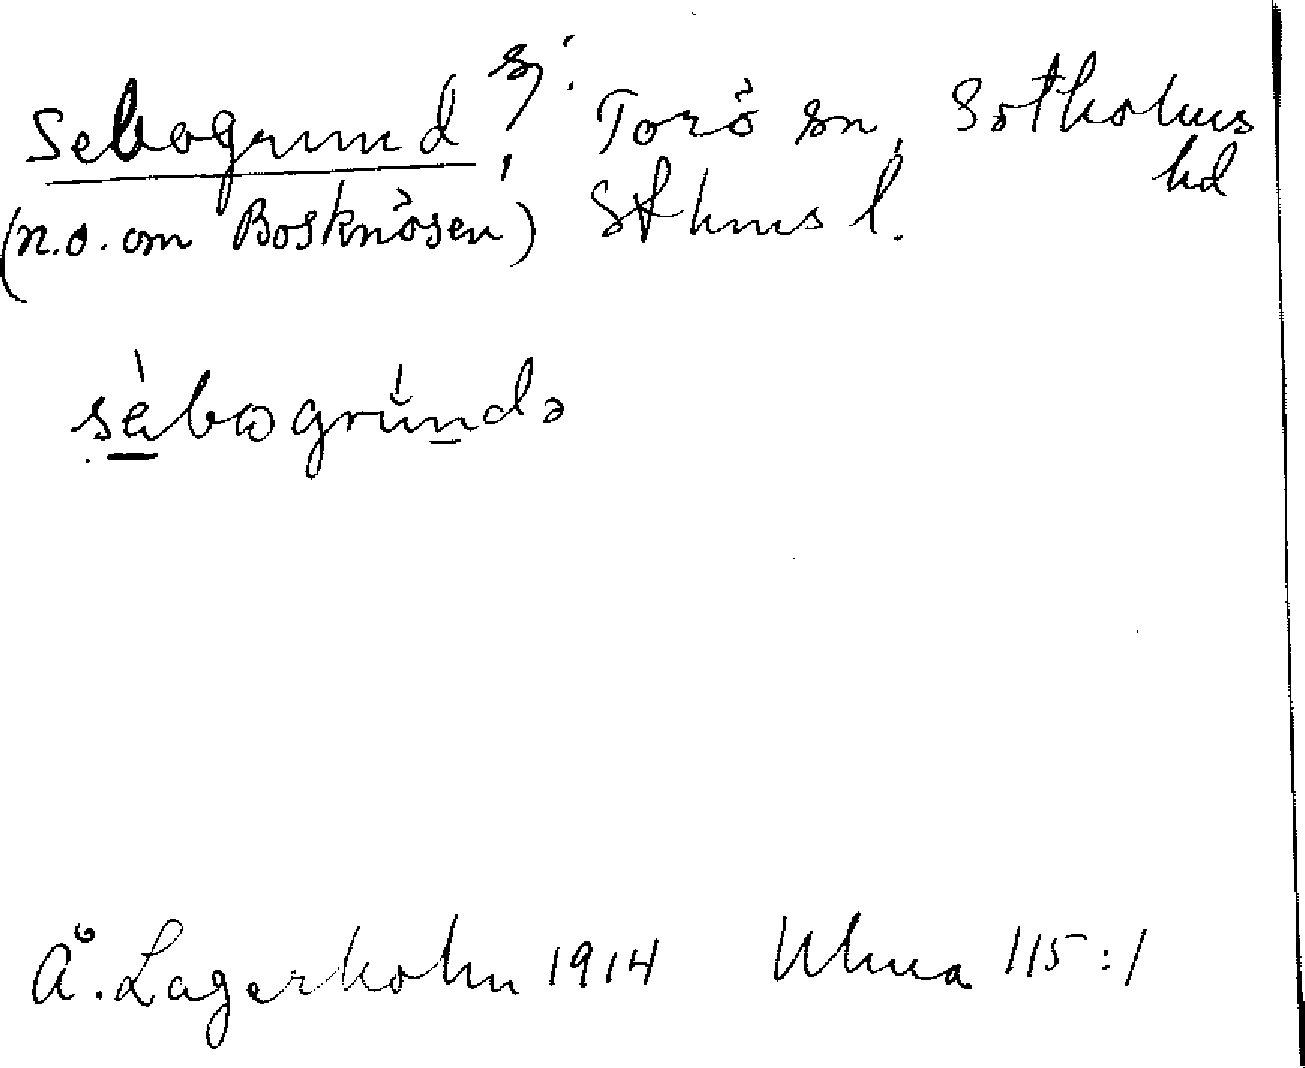 Sebogrund, sj. Torö sn, Sotholms hd
(n.o. om Bosknösen) Sthms l.
sèbωgrùndə
Å. Lagerholm 1914 Uhua 115:1